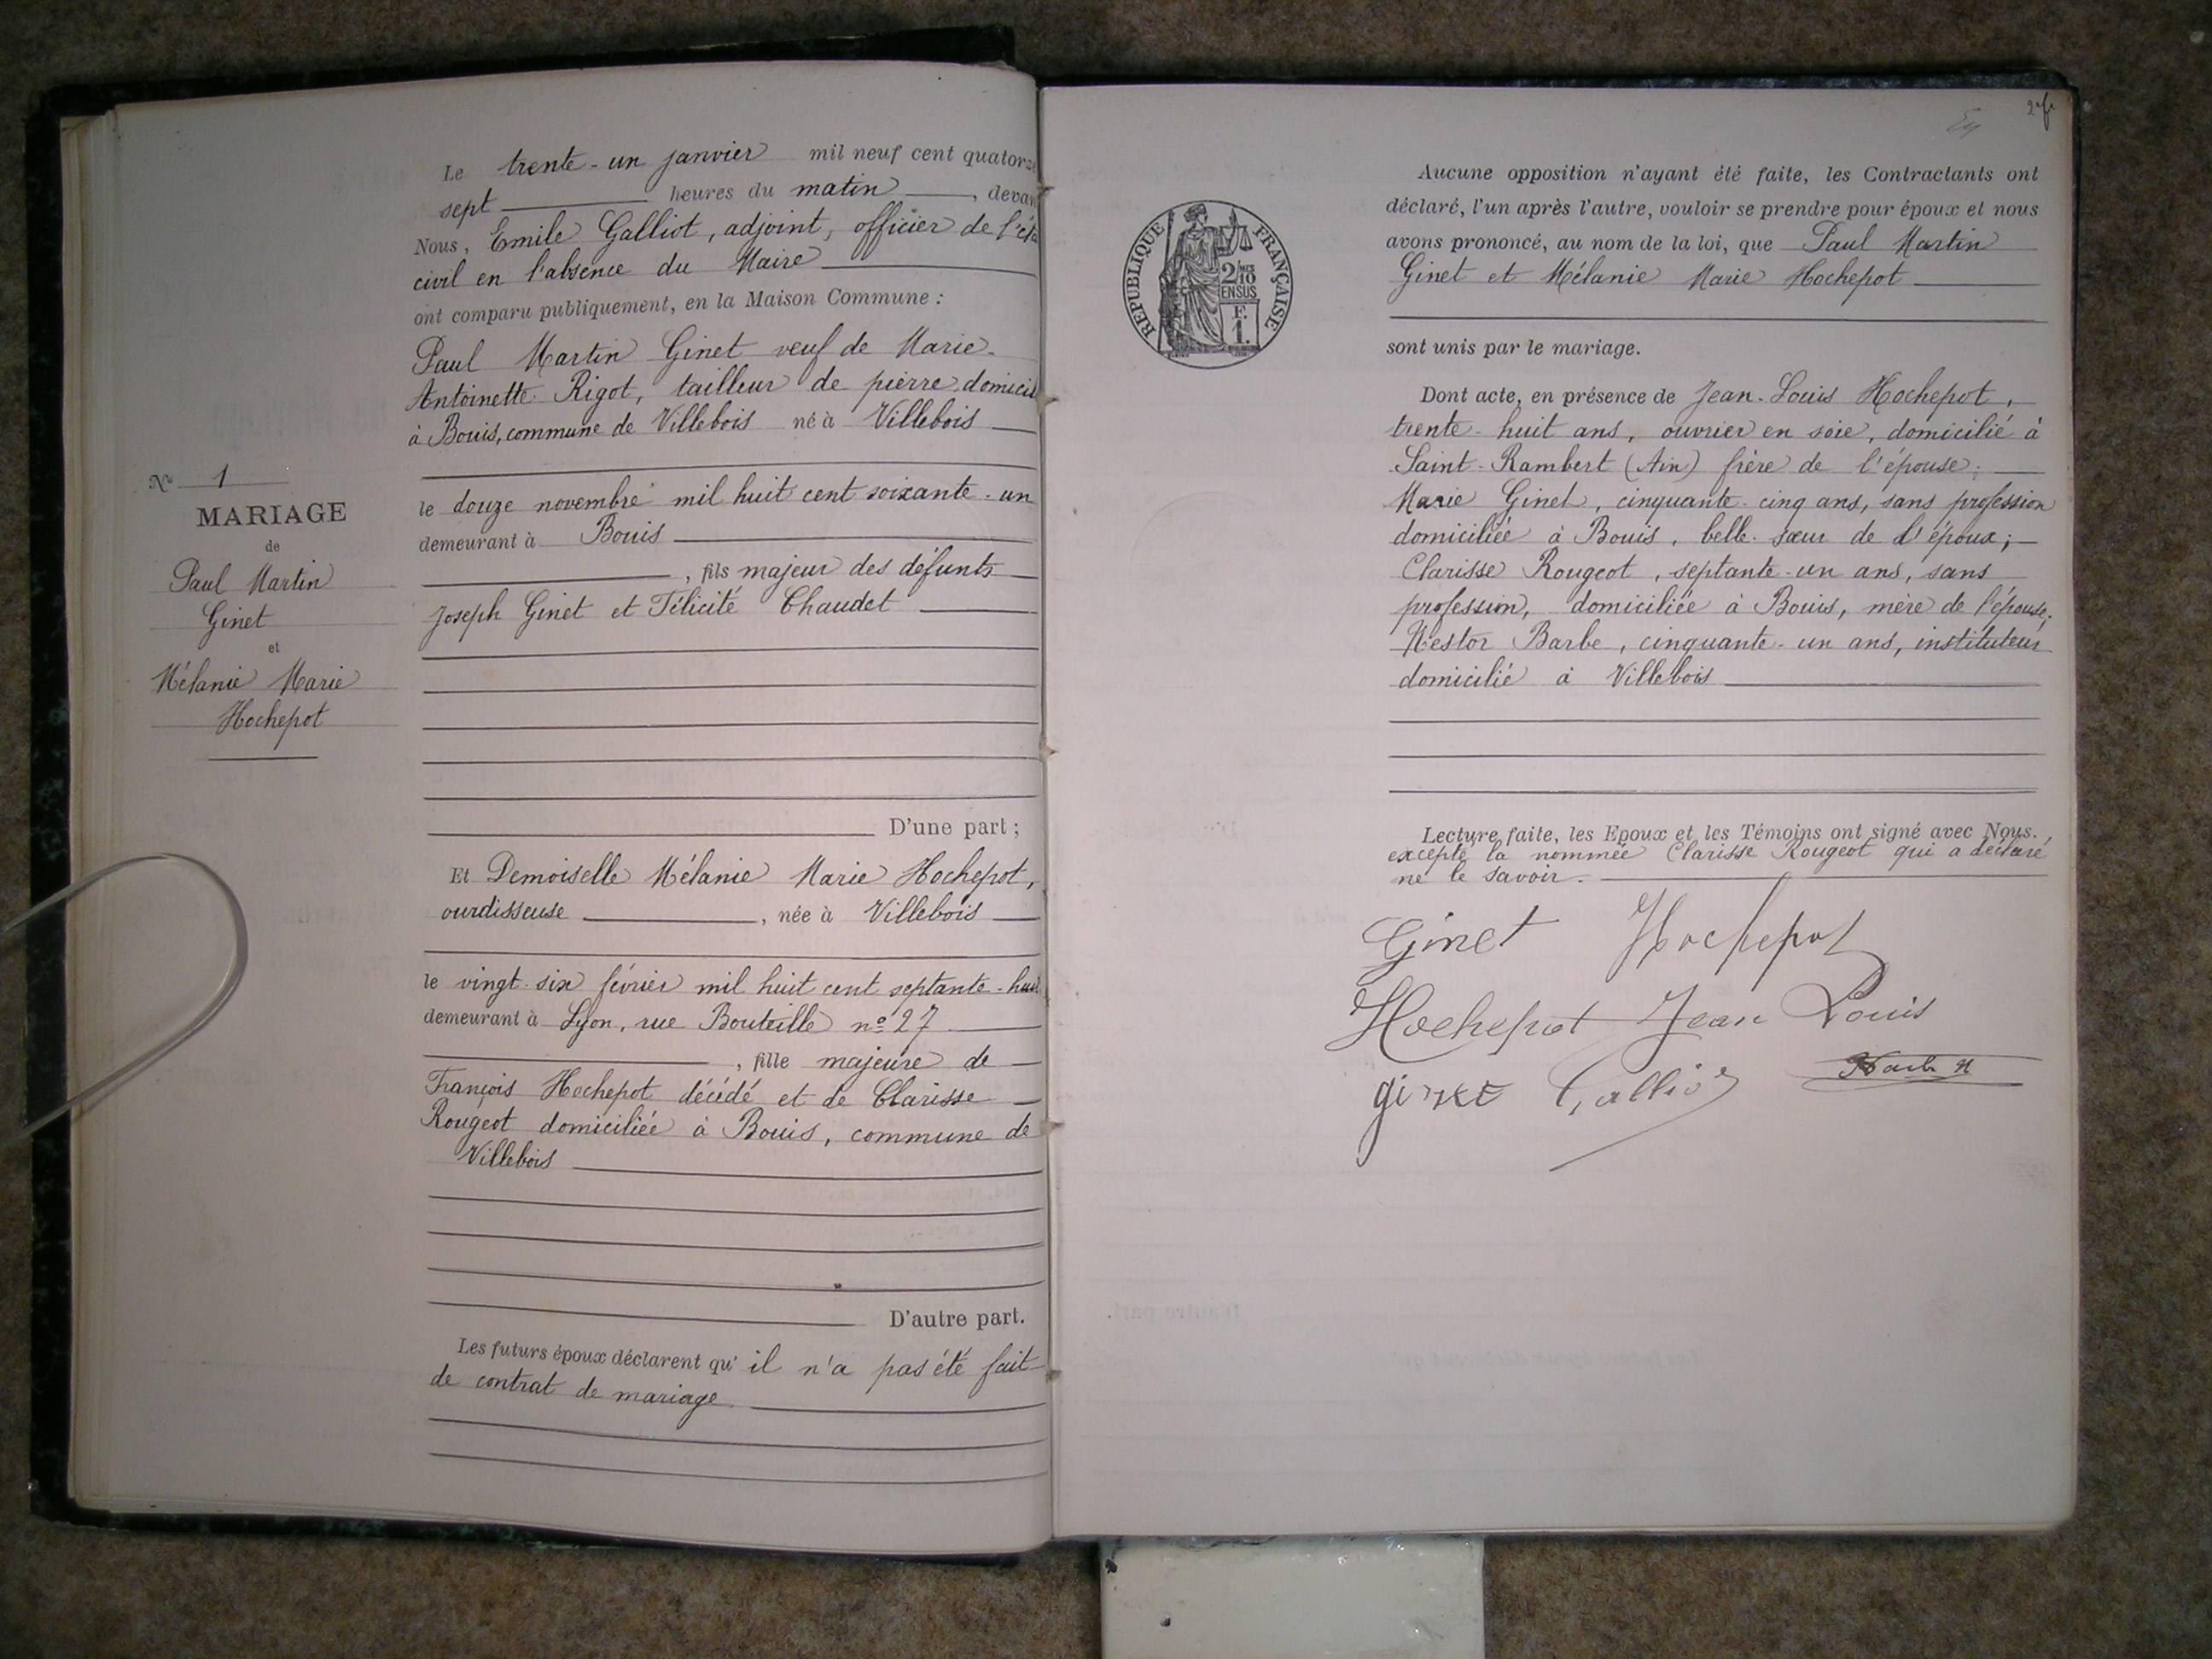 Le trente-un janvier mil neuf cent quatorze
sept heures du matin, devan
Nous, Emile Galliot, adjoint, officier de l'éta
civil en l'absence du Maire
ont comparu publiquement, en la Maison Commune :
Paul Martin Ginet veuf de Marie-
Antoinette Rigot, tailleur de pierre domicil
à Bouis, commune de Villebois né à Villebois
le douze novembre mil huit cent soixante-un
demeurant à Bouis
, fils majeur des défunts
Joseph Ginet et Félicité Chaudet
D'une part ;
Et Demoiselle Mélanie Marie Hochepot,
ourdisseuse, née à Villebois
le vingt-six février mil huit cent septante-huit
demeurant à Lyon, rue Bouteille nº 27
, fille majeure de
François Hochepot décédé et de Clarisse
Rougeot domiciliée à Bouis, commune de
Villebois
D'autre part.
Les futurs époux déclarent qu'il n'a pas été fait
de contrat de mariage.
Nº 1
MARIAGE
de
Paul Martin
Ginet
et
Mélanie Marie
Hochepot
REPUBLIQUE FRANÇAISE
2/10 MES
EN SUS
F.
1.
2e f.
Aucune opposition n'ayant été faite, les Contractants ont
déclaré, l'un après l'autre, vouloir se prendre pour époux et nous
avons prononcé, au nom de la loi, que Paul Martin
Ginet et Mélanie Marie Hochepot
sont unis par le mariage.
Dont acte, en présence de Jean-Louis Hochepot,
trente-huit ans, ouvrier en soie, domicilié à
Saint-Rambert (Ain) frère de l'épouse;
Marie Ginet, cinquante-cinq ans, sans profession
domiciliée à Bouis, belle-sœur de l'époux;
Clarisse Rougeot, septante-un ans, sans
profession, domiciliée à Bouis, mère de l'épouse;
Nestor Barbe, cinquante-un ans, instituteur
domicilié à Villebois
Lecture faite, les Epoux et les Témoins ont signé avec Nous.
excepté la nommée Clarisse Rougeot qui a déclaré
ne le savoir.
Ginet Hochepot
Hochepot Jean Louis
ginet Galliot